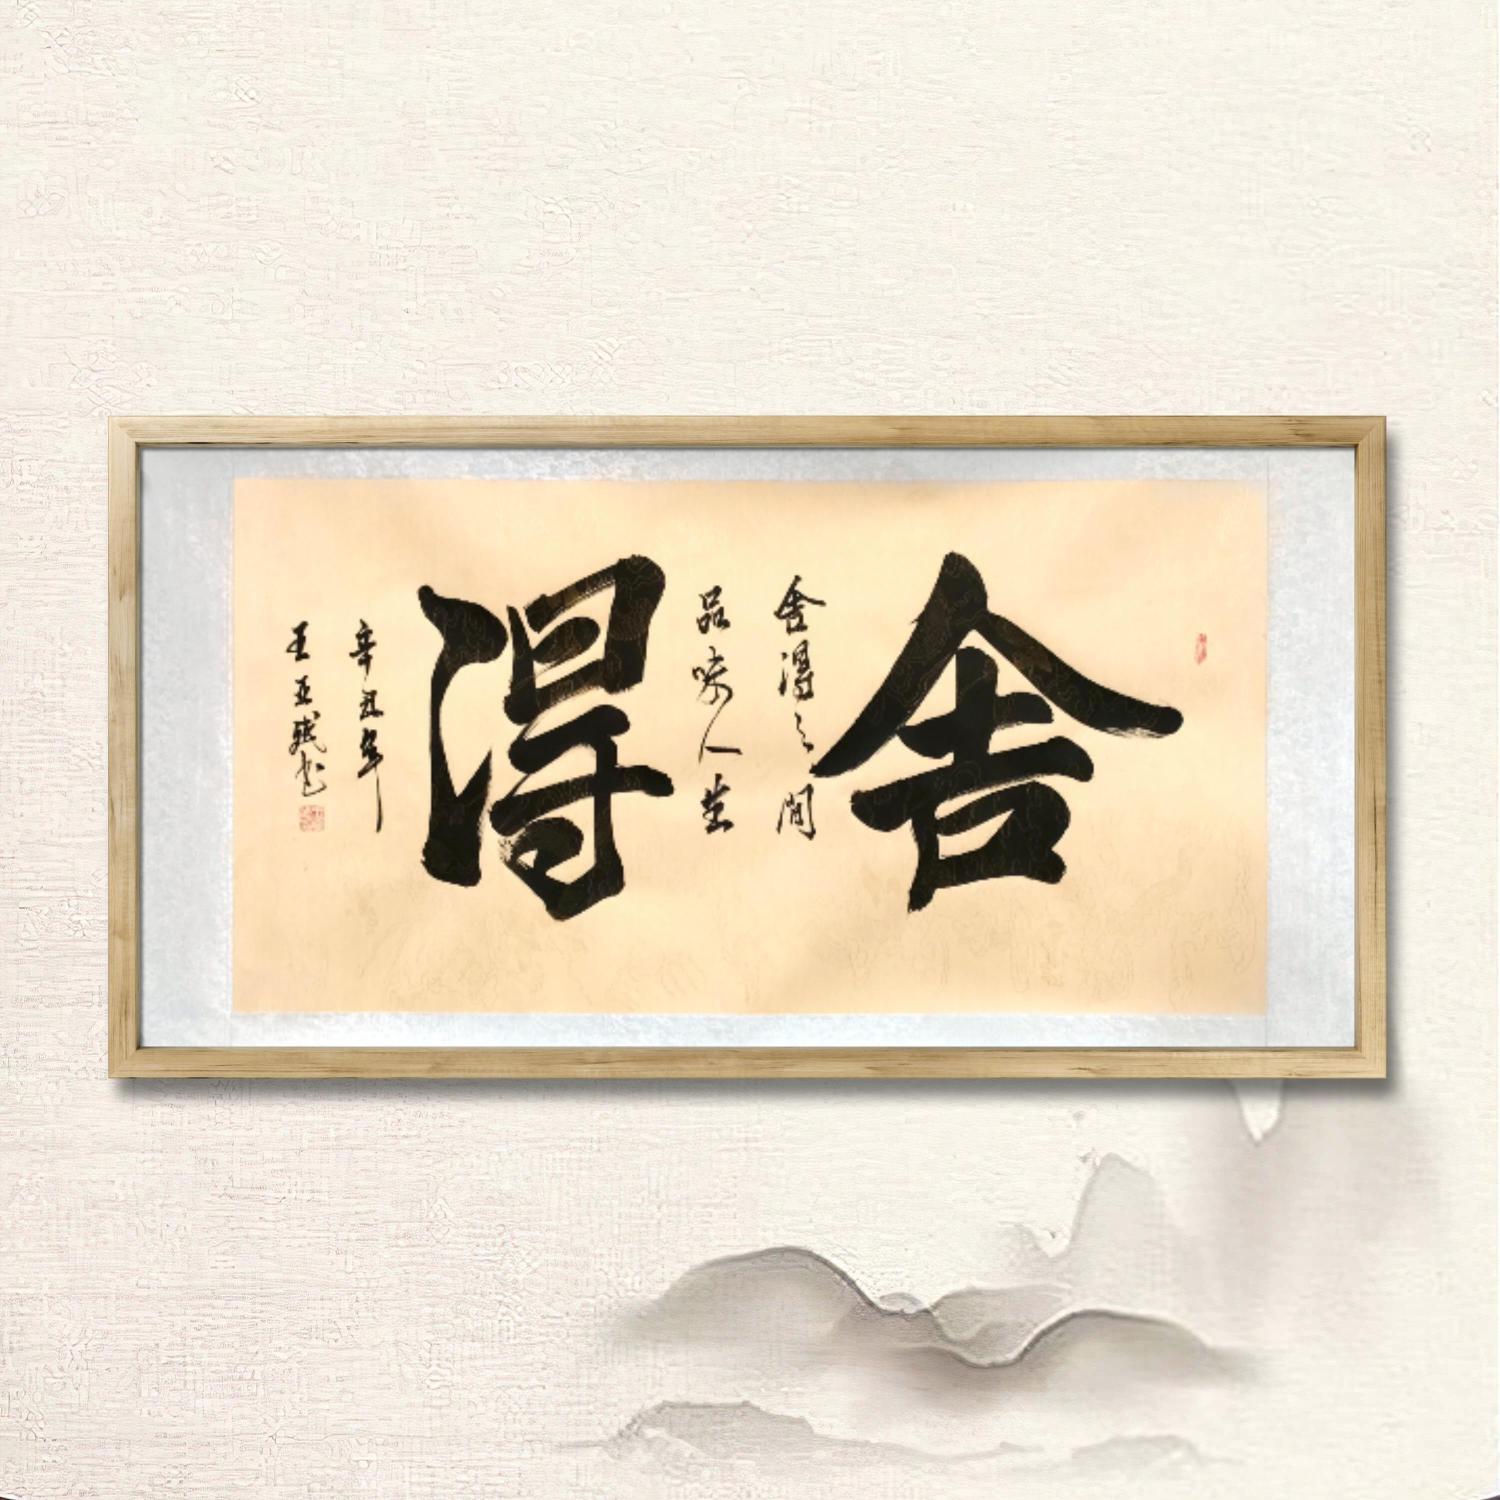 舍
舍得之間
品味人生
得
辛丑年
王亚斌书